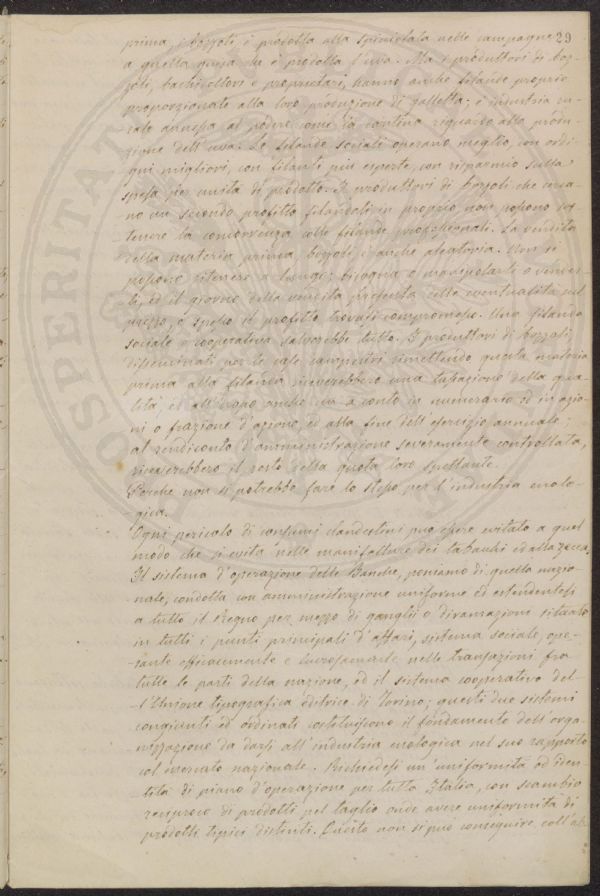 29
prima, i bozzoli, è prodotta alla spicciolata nelle campagne
a quella guisa che è prodotta l'uva. Ma i produttori di boz-
zoli, bachicultori e proprietari, hanno anche filande proprie
proporzionate alla loro produzione di galletta; è industria ru-
rale annessa al podere come la cantina riguardo alla produ-
zione dell'uva. Le filande sociali operano meglio, con ordi-
gni migliori, con filanti più esperte, con risparmio sulla
spesa per unità di prodotto. I produttori di bozzoli che cerca-
no un secondo profitto filandoli in proprio, non possono sos-
tenere la concorrenza colle filande
della materia prima, bozzoli, è anche aleatoria. Non si
possono ritenere a lungo; bisogna o manipolarli o vender-
li, ed il giorno della vendita presenta delle eventualità sul
prezzo, e spesso il profitto trovasi compromesso. Una filanda
sociale e cooperativa salverebbe tutto. I produttori di bozzoli,
disseminati per le valli campestri rimettendo questa materia
prima alla filanda riceverebbero una tassazione della qua-
lità, ed all'uopo anche un a conto in numerario od in azio-
ni o frazione d'azione, ed alla fine dell'esercizio annuale;
al rendiconto d'amministrazione severamente controllata,
riceverebbero il resto della quota loro spettante.
Perchè non si potrebbe fare lo stesso per l'industria enolo-
gica.
Ogni pericolo di consumi clandestini può essere evitato a quel
modo che si evita nelle manifatture dei tabacchi ed alla zecca.
Il sistema d'operazione delle Banche, poniamo di quella nazio-
nale, condotta con amministrazione uniforme ed estendentesi
a tutto il Regno per mezzo di ganglii o diramazione situate
in tutti i punti principali d'affari, sistema sociale, ope-
rante efficacemente e lucrosamente nelle transazioni fra
tutte le parti della nazione, ed il sistema cooperativo del-
l'Unione tipografica editrice di Torino; questi due sistemi
congiunti ed ordinati costituiscono il fondamento dell'orga-
nizzazione da darsi all'industria enologica nel suo rapporto
col mercato nazionale. Richiedesi un'uniformità od iden-
tità di piano d'operazione per tutta Italia, con scambio
reciproco di prodotti pel taglio onde avere uniformità di
prodotti tipici distinti. Questo non si può conseguire coll'